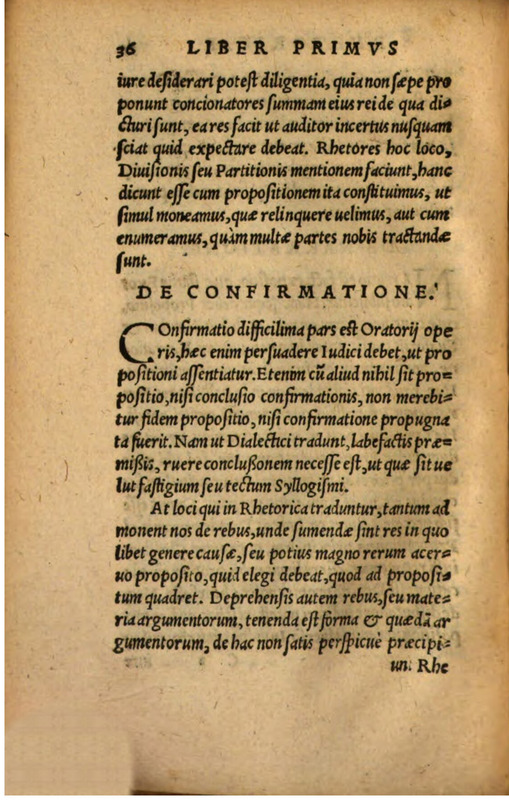 36 LIBER PRIMVS
iure desiderari potest diligentia, quia non sæpe pro
ponunt concionatores summam eius rei de qua di-
cturi sunt, ea res facit ut auditor incertus nusquam
sciat quid expectare debeat. Rhetores hoc loco,
Diuisionis seu Partitionis mentionem faciunt, hanc
dicunt esse cum propositionem ita constituimus, ut
simul moneamus, quæ relinquere uelimus, aut cum
enumeramus, quàm multæ partes nobis tractandæ
sunt.
DE CONFIRMATIONE.
COnfirmatio difficilima pars est Oratorij ope
ris, hæc enim persuadere Iudici debet, ut pro
positioni assentiatur. Etenim cũ aliud nihil sit pro=
positio, nisi conclusio confirmationis, non merebi=
tur fidem propositio, nisi confirmatione propugna
ta fuerit. Nam ut Dialectici tradunt, labefactis præ=
mißis, ruere conclußonem necesse est, ut quæ sit ue
lut fastigium seu tectum Syllogismi.
At loci qui in Rhetorica traduntur, tantum ad
monent nos de rebus, unde sumendæ sint res in quo
libet genere causæ, seu potius magno rerum acer=
uo proposito, quid elegi debeat, quod ad proposi=
tum quadret. Deprehensis autem rebus, seu mate=
ria argumentorum, tenenda est forma & quædã ar
gumentorum, de hac non satis perspicuè præcipi=
un. Rhe